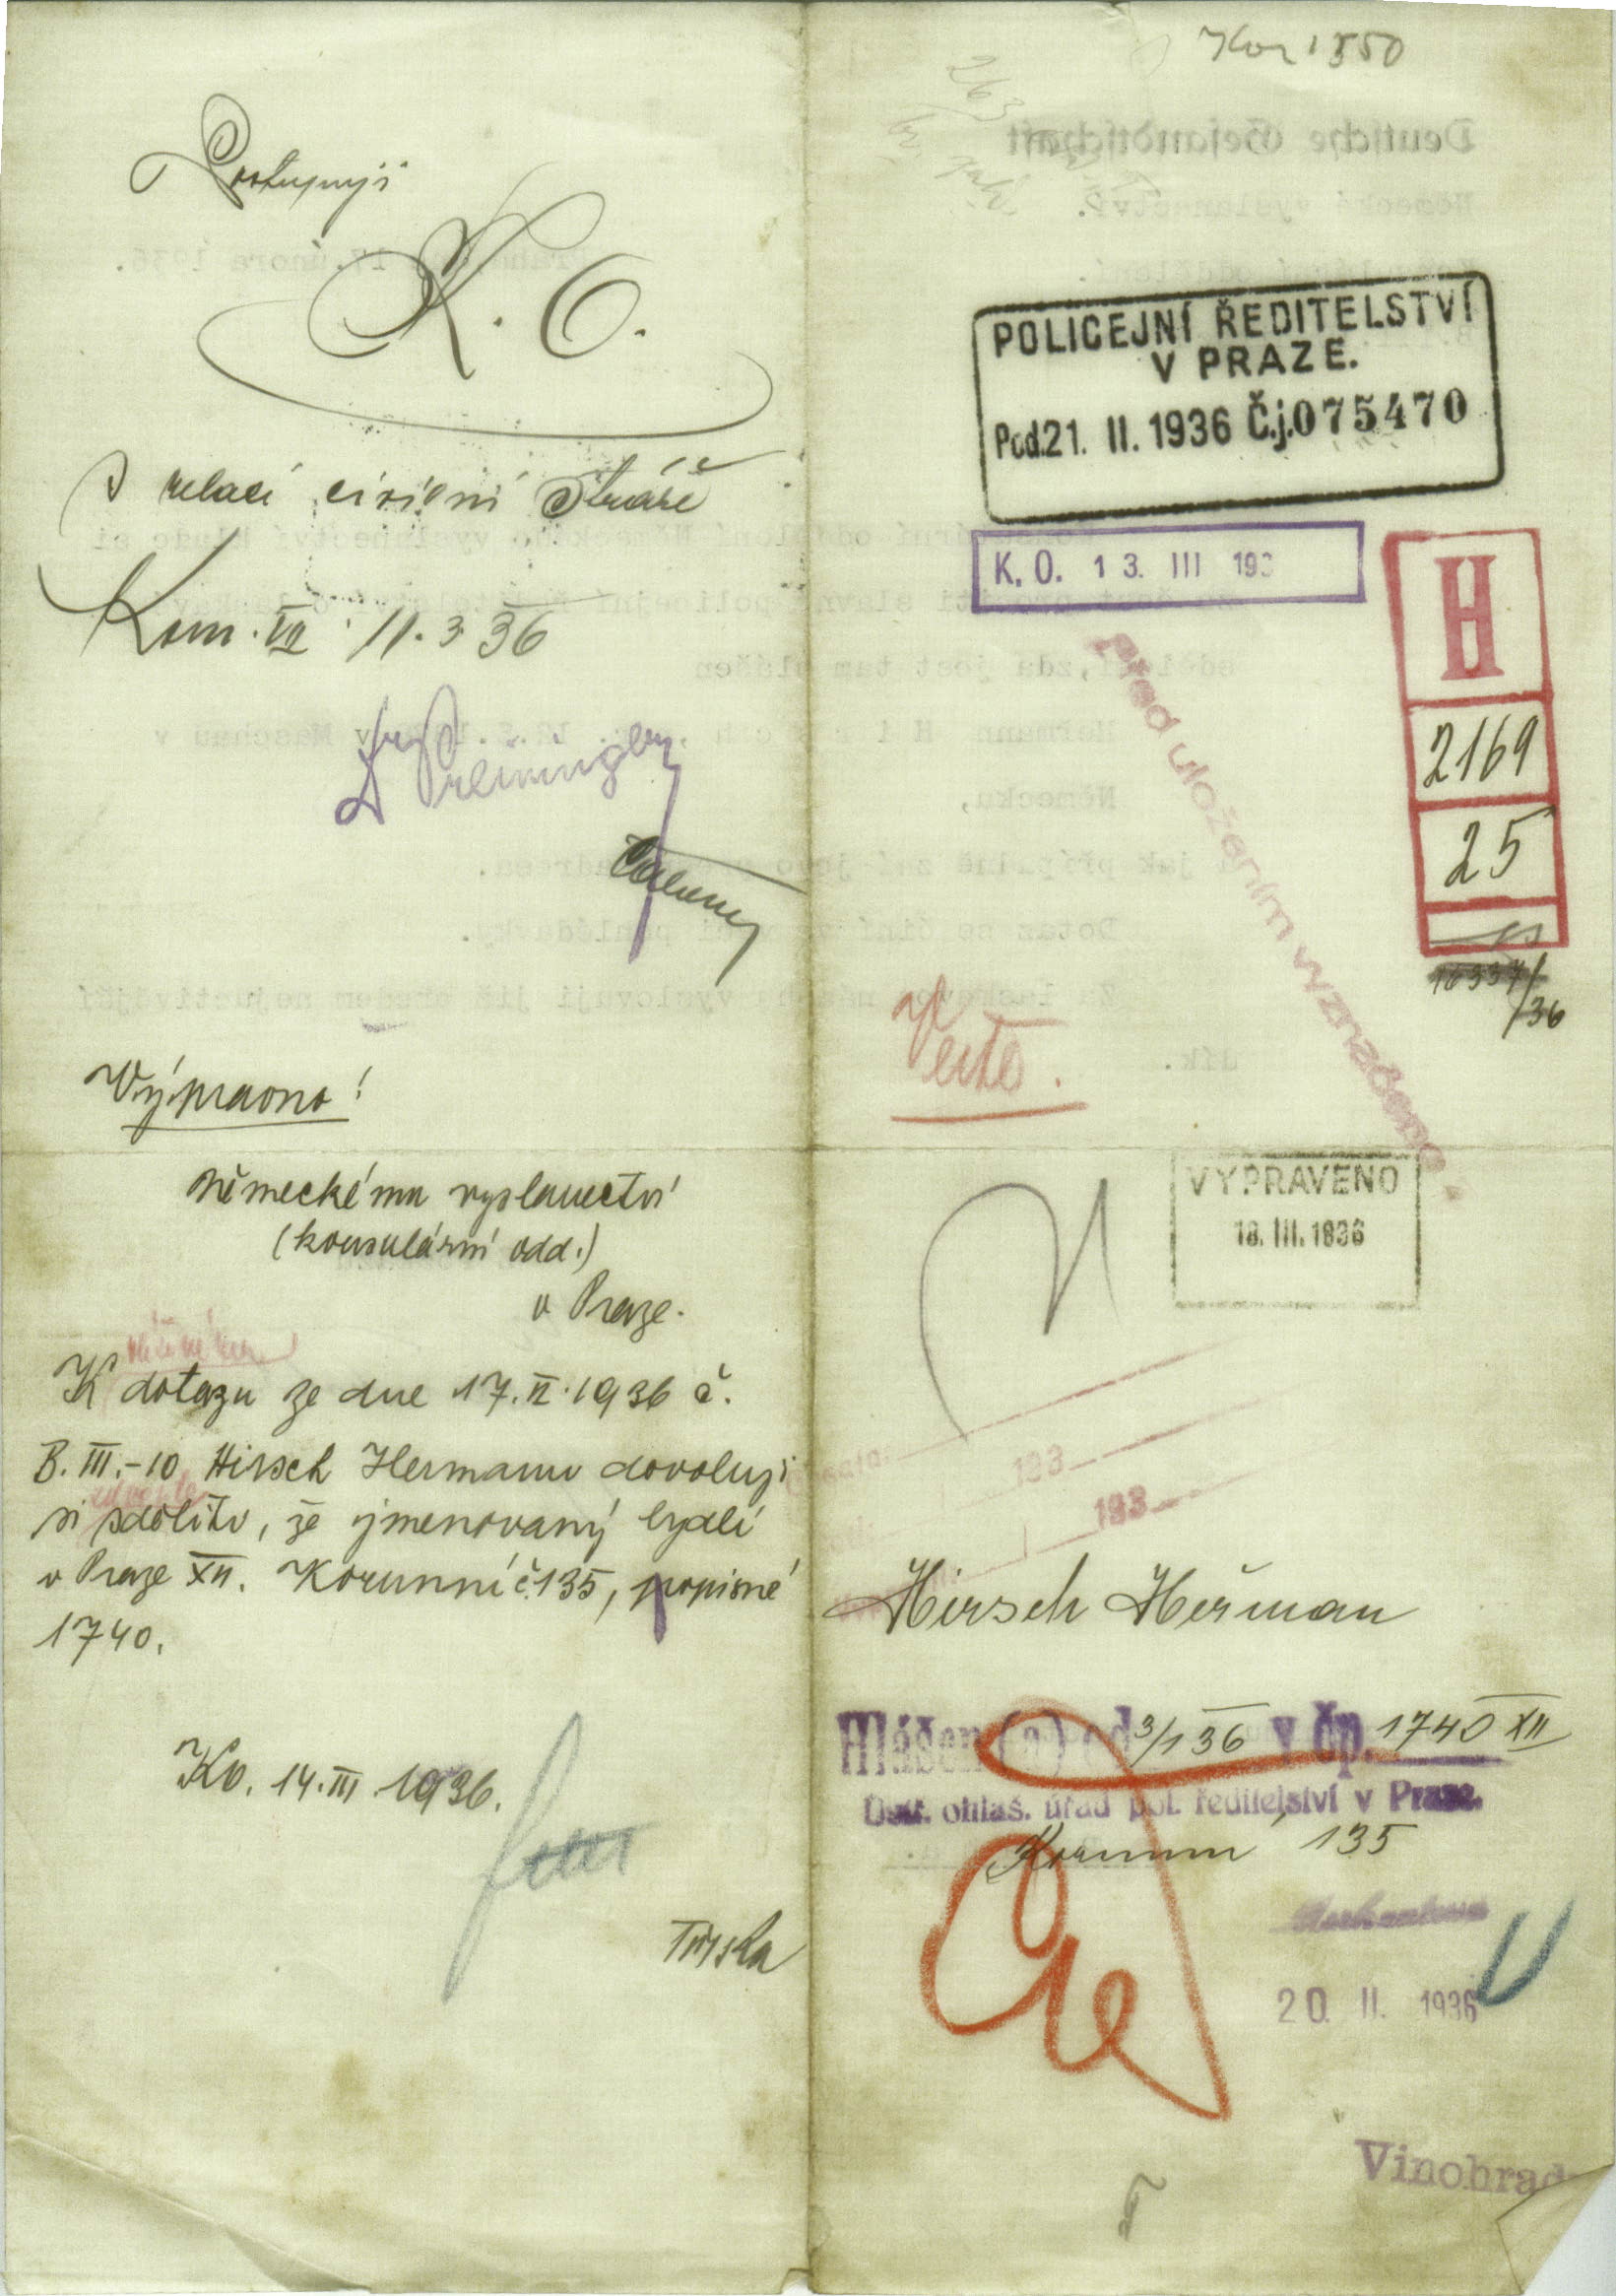 Postupuji
K. O.
s relací civilní stráže
Kom. VII 11. 3. 36
Výpravna!
Německému vyslanectví
(konsulární odd.)
v Praze.
K dotazu ze dne 17. II. 1936 č.
B. III.-10 Hirsch Hermann dovoluji
si sděliti, že jmenovaný bydlí
v Praze XII. Korunní č. 135, popisné
1740.
KO. 14. III. 1936.
POLICEJNÍ ŘEDITELSTVÍ
V PRAZE.
Pod. 21. II. 1936 Č.j. 075470
K. O. 13. III 193
H
2169
25
/36
Před uložením vyznačeno.
Verte.
VYPRAVENO
18. III. 1936
193
193
Hirsch Heřman
Hlášen (a) od 3/1 36 v čp. 1740 XII
Ústř. ohlaš. úřad pol. ředitelství v Praze.
Korunní 135
20. II. 1936
Vinohrad